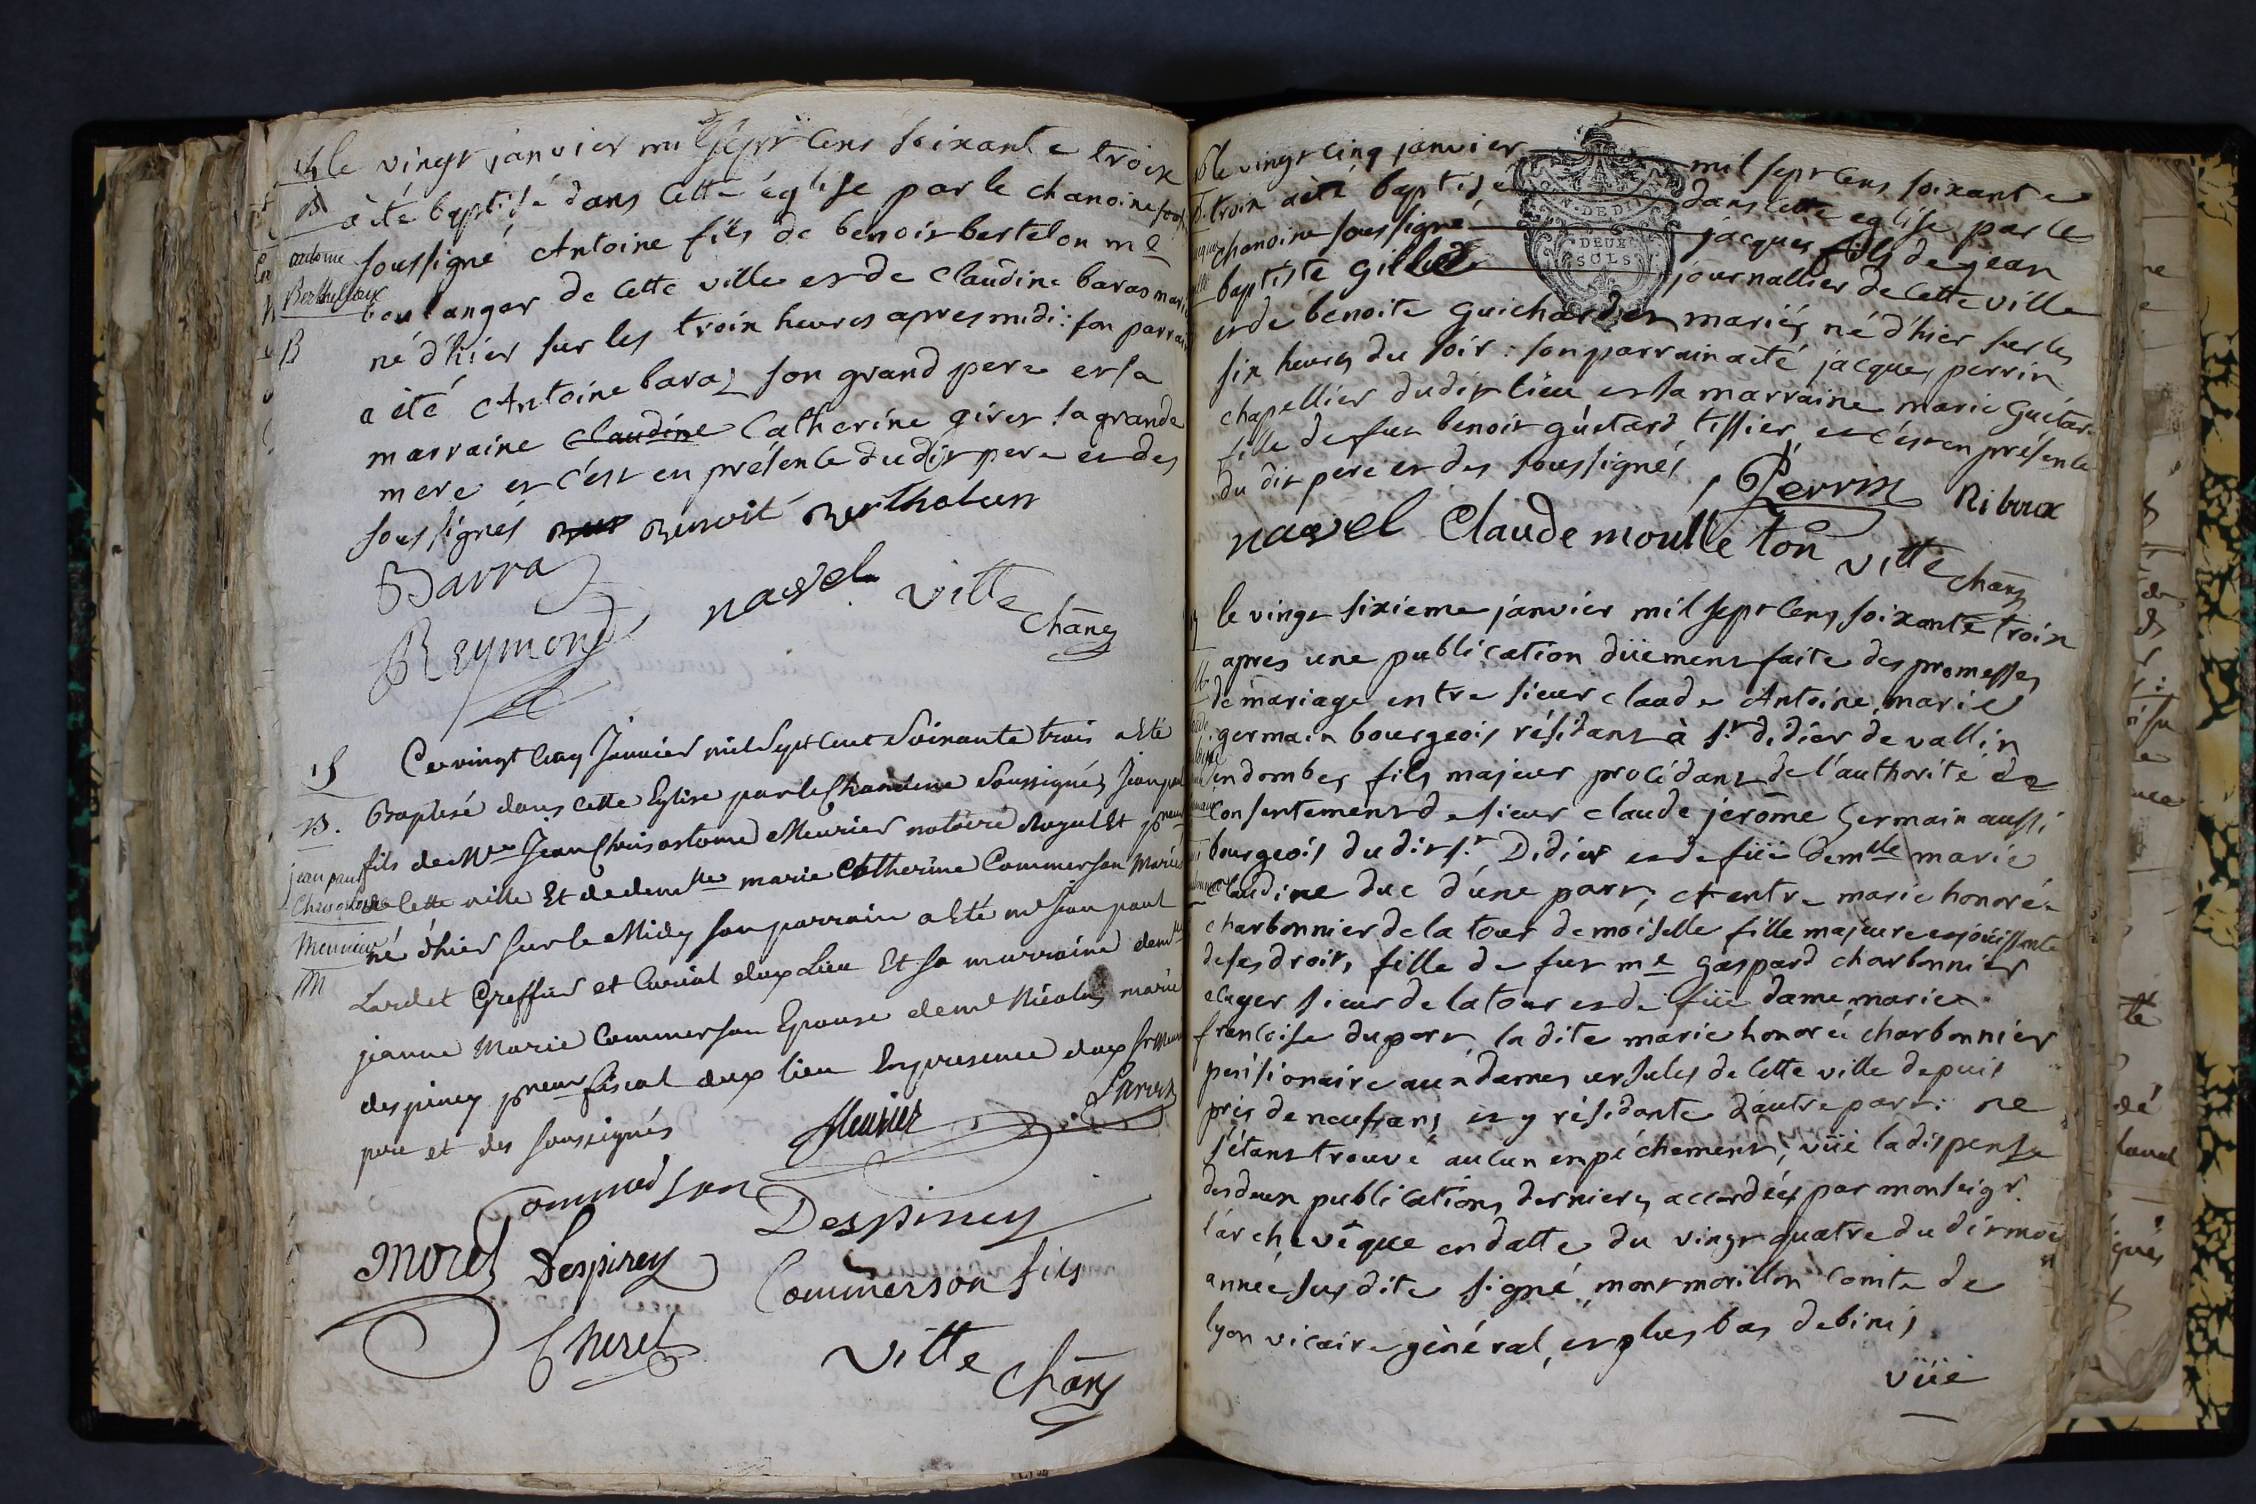 14 le vingt janvier mil sept cens soixante troix
B a été baptisé dans cette église par le chanoine sous
antoine soussigné Antoine fils de benoit bertelon me
Berthelon boulanger de cette ville et de Claudine baras mariés
B né d'hier sur les troix heures apres midi : son parrain
a été Antoine baraz son grand pere et sa
marraine Claudine Catherine giret sa grande
mere et c'est en présence dudit pere et des
soussignés Benoit Berthelon
Barra
nasvel vitte chãne
Reymond
15 Ce vingt cinq Janvier mil Sept cent Soixante trois a Eté
B. Baptisé dans cette Eglise par le Chanoine Soussigné, Jean paul
fils de Mre Jean Chrisostome Meunier notaire Royal Et preur
jean paul
Chrisostome de Cette ville Et de demlle marie Catherine Commerson Mariés
Meunier né d'hier sur le Midy son parrain a Eté mr Jean paul
M Lardet Greffier et Curial dudt Lieu Et sa marraine demlle
jeanne Marie Commerson Epouse de mr Nicolas marie
despiney preur fiscal dudt lieu En presence dudt sr Meunier
pere et des soussignés
Meunier Lardet
Commerson
Despiney
Morel Despiney
Commerson fils
Cheret
vitte chãne
le vingt cinq janvier mil sept cens soixante
troix a été baptisé dans cette eglise par le
chanoine soussigné jacques fils de jean
baptiste gillet journallier de cette ville
et de benoite guichardet mariés, né d'hier sur les
six heures du soir : son parrain a été jacques perrin
chapellier dudit lieu et sa marraine marie guétar
fille de fut benoit guetard tissier, et c'est en présence
du dit pere et des soussignés.
Perrin Riboux
nasvel Claude moulleton vitte chãne
le vingt sixieme janvier mil sept cens soixante troix
apres une publication düement faite des promesses
de mariage entre sieur claude Antoine marie
germain bourgeois résidant à st didier de vallin
en dombes fils majeur procédant de l'authorité et
consentement de sieur claude jerôme Germain aussi
bourgeois du dit st Didier et de füe demlle marie
claudine duc d'une part, et entre marie honoré
charbonnier de la tour demoiselle fille majeure et joüissante
de ses droits, fille de fut me gaspard charbonnier
ecuyer sieur de la tour et de füe dame marie
francoise duport, la dite marie honoré charbonnier
pensionaire aux dames ursules de cette ville depuis
près de neuf ans et y résidante d'autre part : ne
s'étant trouvé aucun empéchement, vüe la dispense
des deux publications dernieres accordées par monseigr.
l'archevêque en datte du vingt quatre du dit mois
année susdite signé montmorillon comte de
lyon vicaire général, et plus bas debinis
vüe
DEUX
SOLS